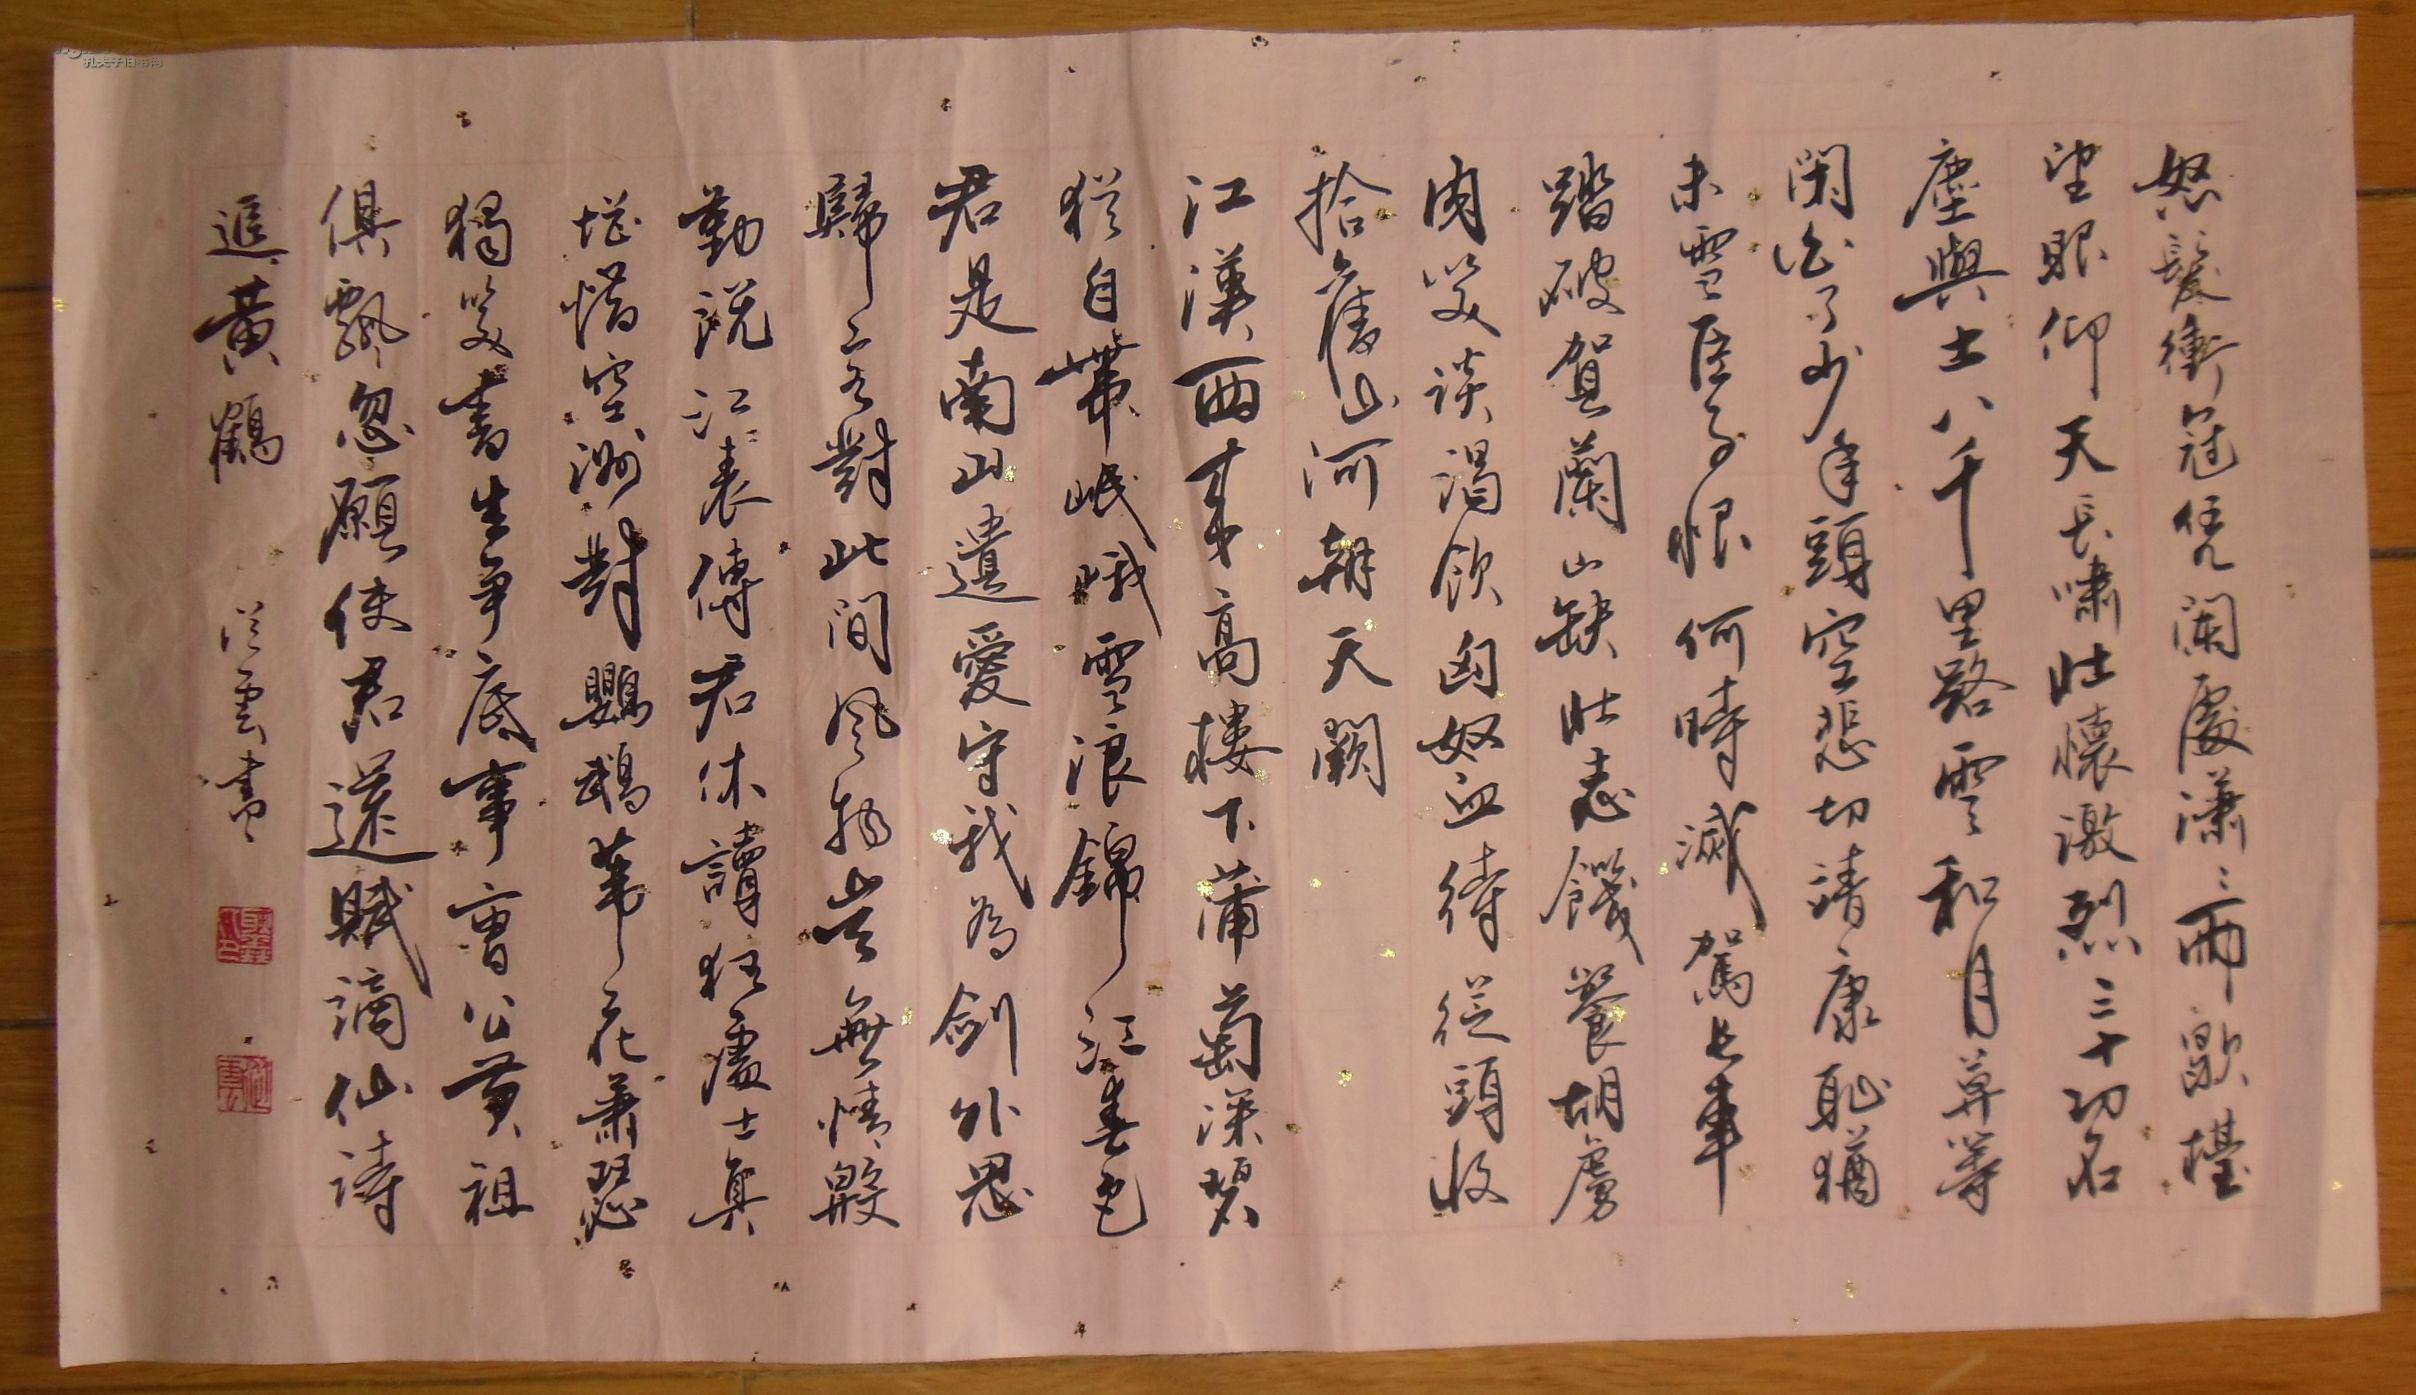 怒髮衝冠凭闌處瀟〻雨歇擡
望眼仰天長嘯壯懷激烈三十功名
塵與土八千里路雲和月莫等
閑白了少年頭空悲切靖康恥猶
未雪臣子恨何時滅駕長車
踏破賀蘭山缺壯志饑餐胡虜
肉笑談渴飲匈奴血待從頭收
拾舊山河朝天闕
江漢西來高樓下蒲萄深碧
猶自帶岷峨雪浪錦江春色
君是南山遺愛守我為劍外思
歸客對此間風物豈無情殷
勤說江表傳君休讀狂處士真
堪惜空洲對鸚鵡葦花蕭瑟
獨笑書生爭底事曹公黃祖
俱飄忽願使君還賦謫仙詩
追黃鶴
從雲書
孔夫子旧书网